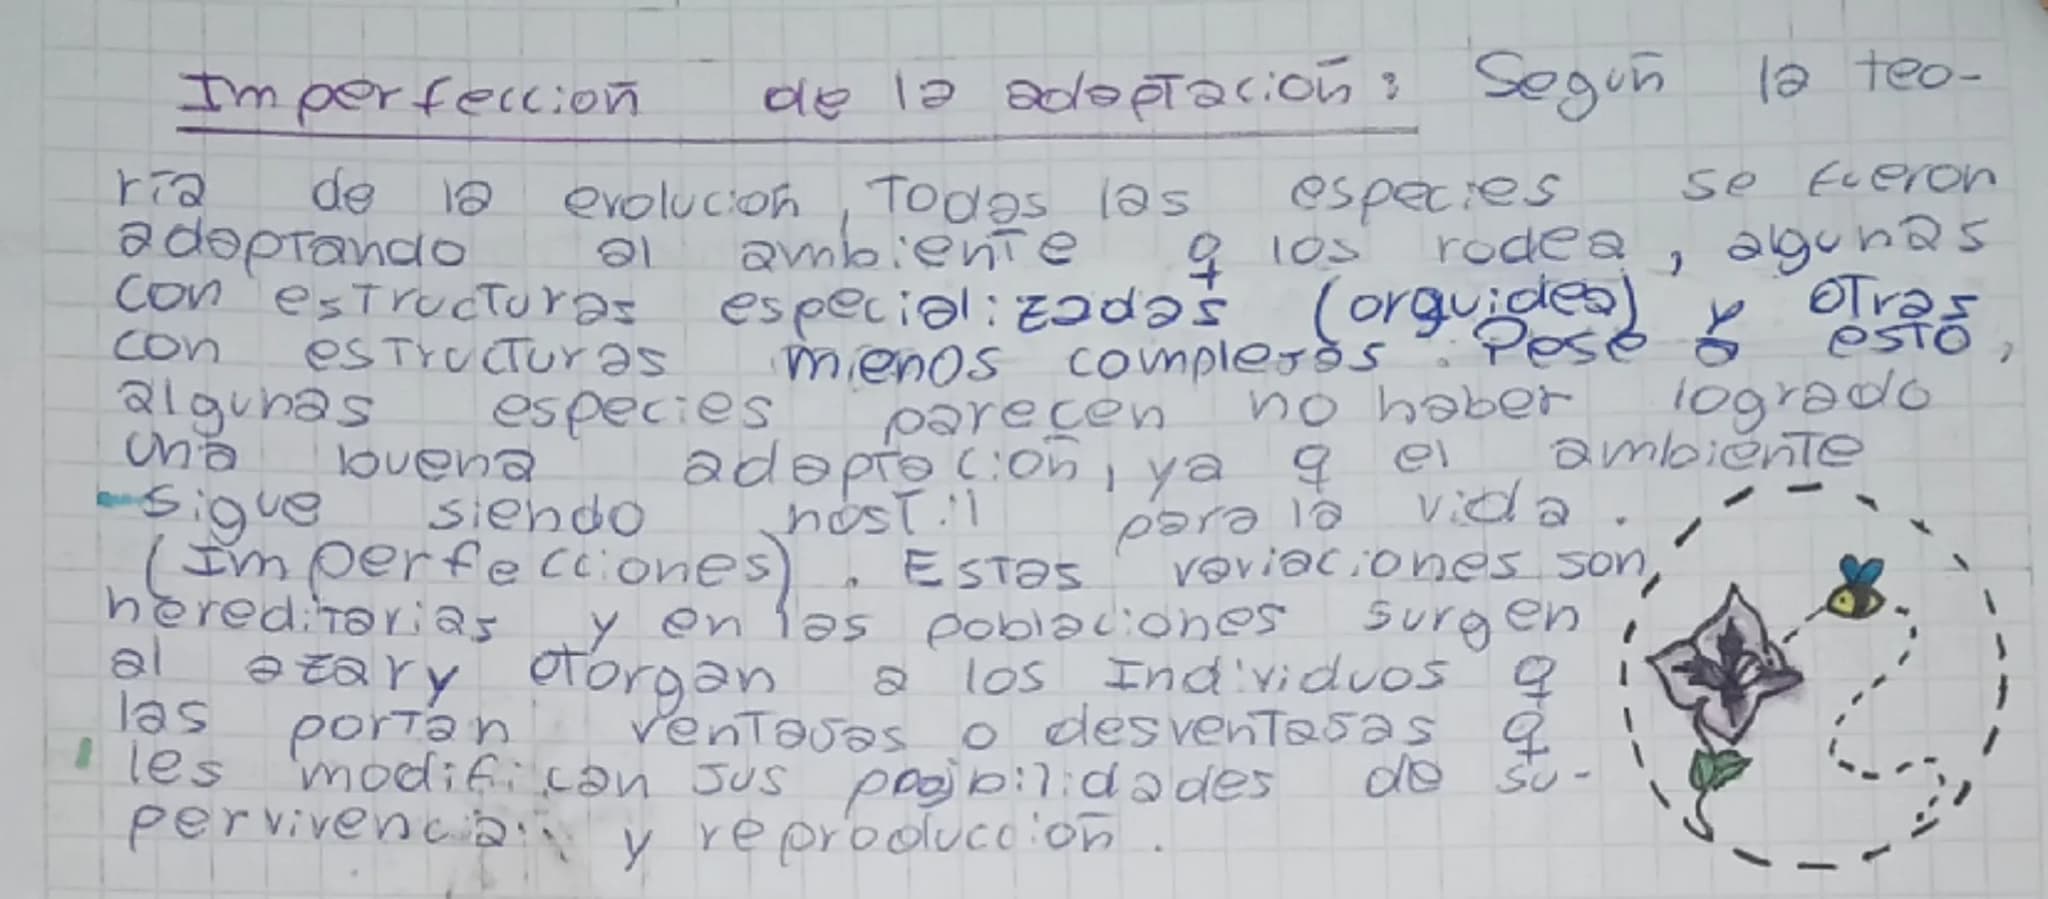 Imperfección de la adaptación: Según la teo-
ría de la evolución, Todas las especies se fueron
adaptando al ambiente q los rodea, algunas
con estructuras especializadas (orquidea) y otras
con estructuras menos complejas. Pese a esto,
algunas especies parecen no haber logrado
una buena adaptación, ya q el ambiente
sigue siendo hostil para la vida.
(Imperfecciones). Estas variaciones son
hereditarias y en las poblaciones surgen
al azar y otorgan a los Individuos q
las portan ventajas o desventajas q
les modifican sus posibilidades de su-
pervivencia y reproducción.